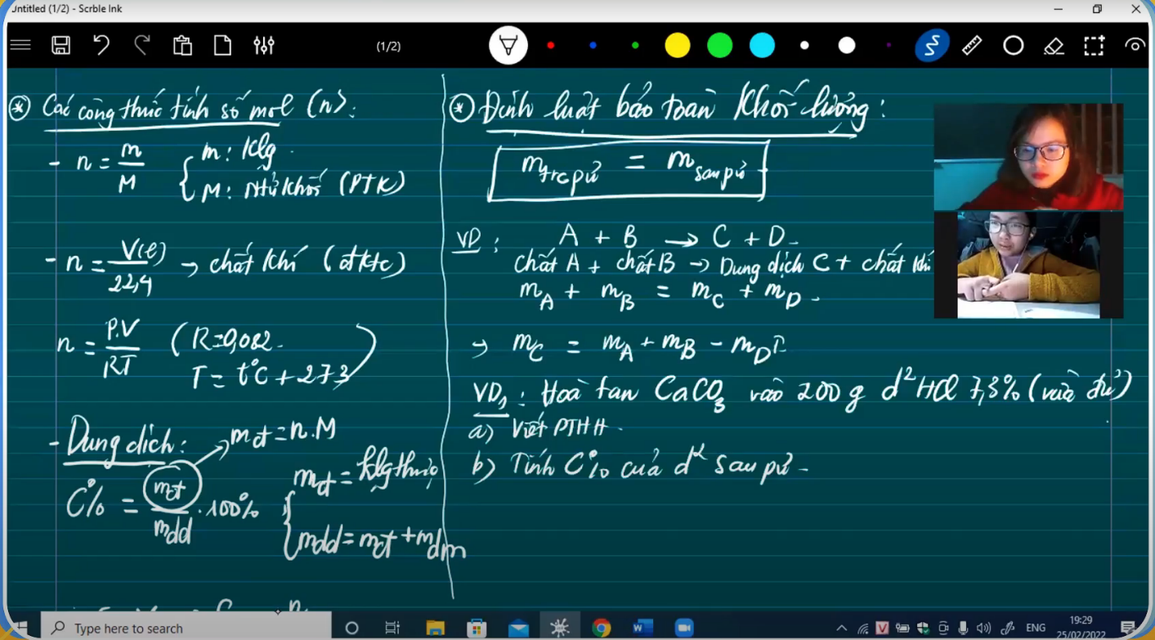 Untitled (1/2) - Scrble Ink
(1/2)
* Các công thức tính số mol (n):
- n = m/M { m: klg
M: Ntử khối (PTK)
- n = V(l)/22,4 → chất khí (đktc)
n = P.V/RT ( R=0,082
T = t°C + 273 )
- Dung dịch: → mct = n.M
C% = mct/mdd . 100%
mct = klg
{ mdd = mct + mdm
* Định luật bảo toàn khối lượng:
mtrc pứ = msau pứ
VD: A + B → C + D
chất A + chất B → Dung dịch C + chất khí
mA + mB = mC + mD
→ mC = mA + mB - mD↑
VD1: Hoà tan CaCO3 vào 200g d² HCl 7,3% (vừa đủ)
a) Viết PTHH.
b) Tính C% của d² sau pứ.
Type here to search
ENG
19:29
25/02/2022